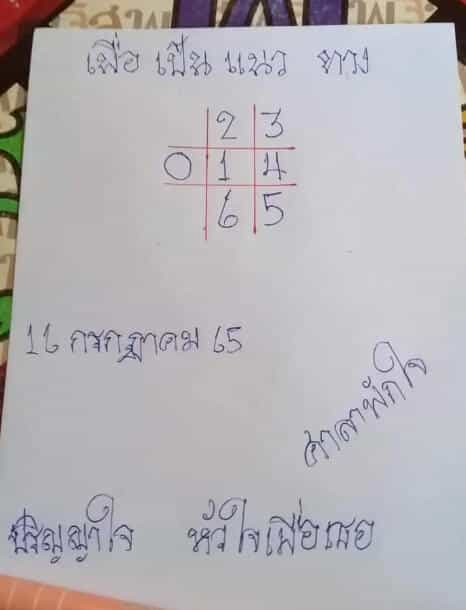 เพื่อ เป็น แนว ทาง
2 3
0 1 4
6 5
16 กรกฎาคม 65
ศาลาพักใจ
ปัญญาใจ หัวใจเพื่อเธอ